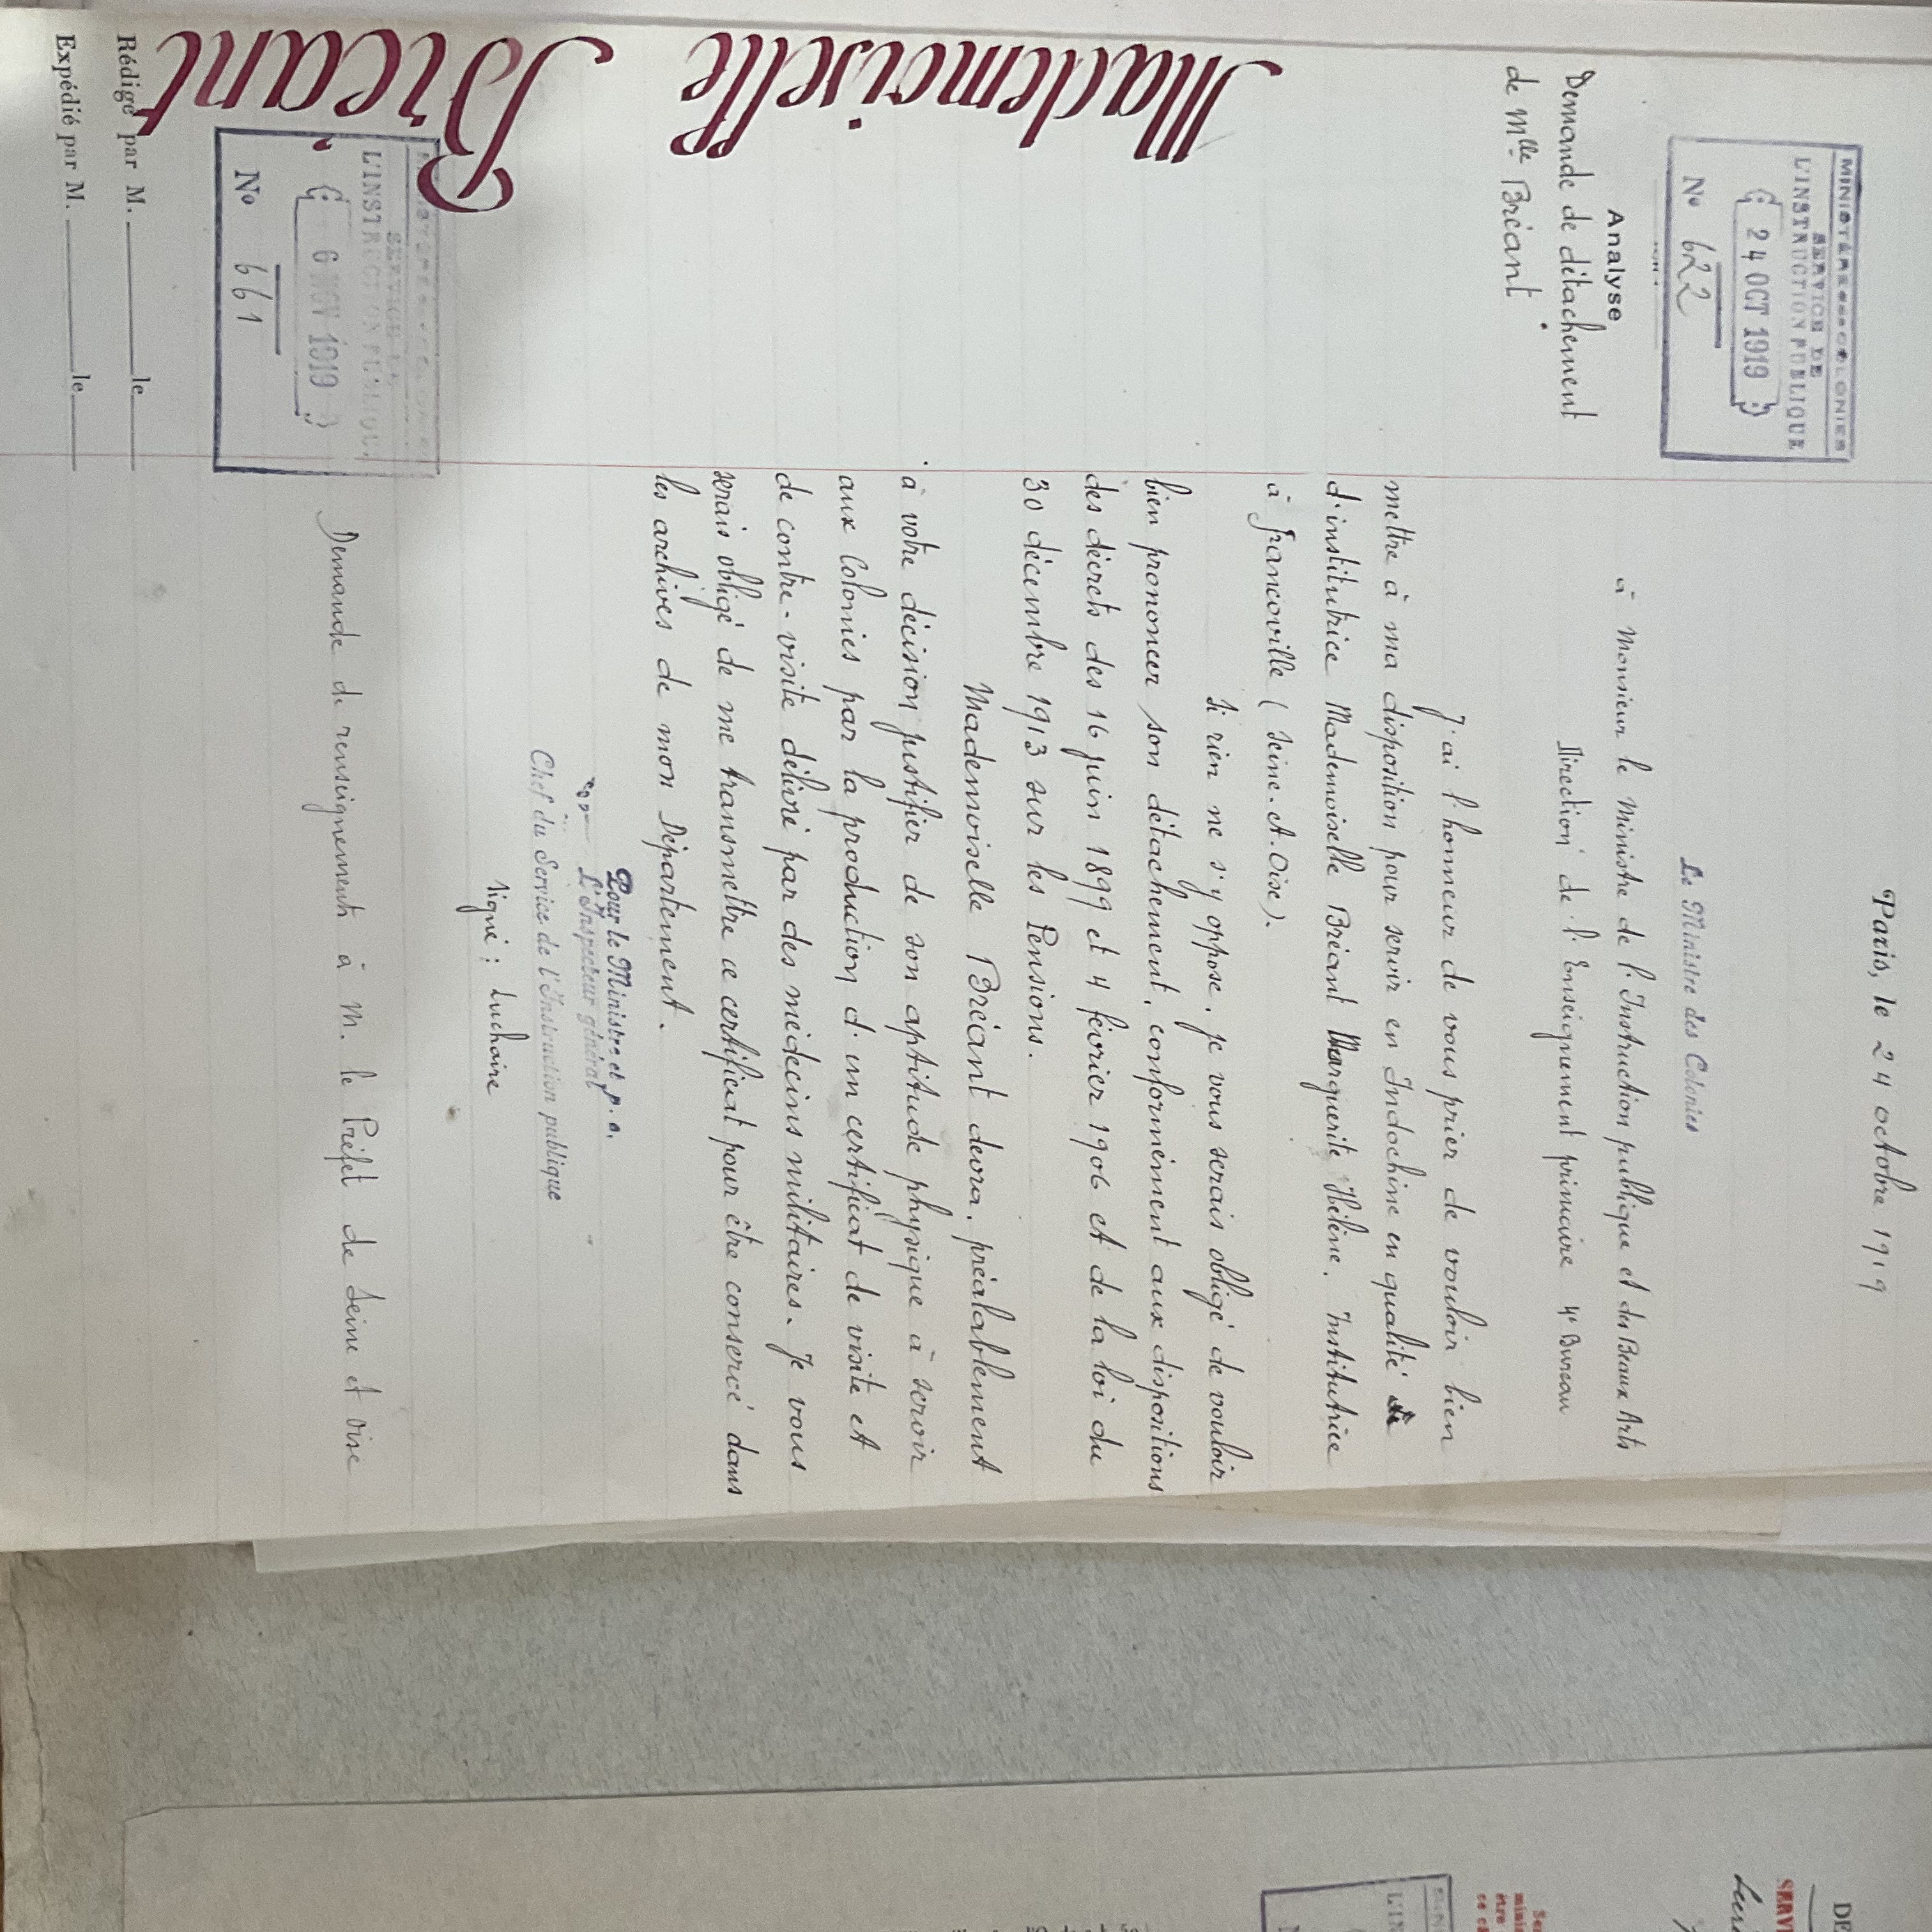 Paris, le 24 octobre 1919
MINISTÈRE DES COLONIES
SERVICE DE
L'INSTRUCTION PUBLIQUE
24 OCT 1919
No 622
Analyse
Demande de détachement
de Mlle Bréant.
Le Ministre des Colonies
à Monsieur le Ministre de l'Instruction publique et des Beaux Arts
Direction de l'Enseignement primaire 4e Bureau
J'ai l'honneur de vous prier de vouloir bien
mettre à ma disposition pour servir en Indochine en qualité
d'institutrice Mademoiselle Bréant Marguerite Hélène. Institutrice
à Francoville (Seine.et.Oise).
Si rien ne s'y oppose, je vous serais obligé de vouloir
bien prononcer son détachement, conformément aux dispositions
des décrets des 16 juin 1899 et 4 février 1906 et de la loi du
30 décembre 1913 sur les Pensions.
Mademoiselle Bréant devra, préalablement
à votre décision justifier de son aptitude physique à servir
aux Colonies par la production d'un certificat de visite et
de contre-visite délivré par des médecins militaires. Je vous
serais obligé de me transmettre ce certificat pour être conservé dans
les archives de mon Département.
Pour le Ministre et p. o.
L'Inspecteur général
Chef du Service de l'Instruction publique
Signé : Luchaire
Mademoiselle
Bréant
SERVICE DE
L'INSTRUCTION PUBLIQUE
6 NOV 1919
No 661
Demande de renseignements à M. le Préfet de Seine et Oise
Rédigé par M. le
Expédié par M. le